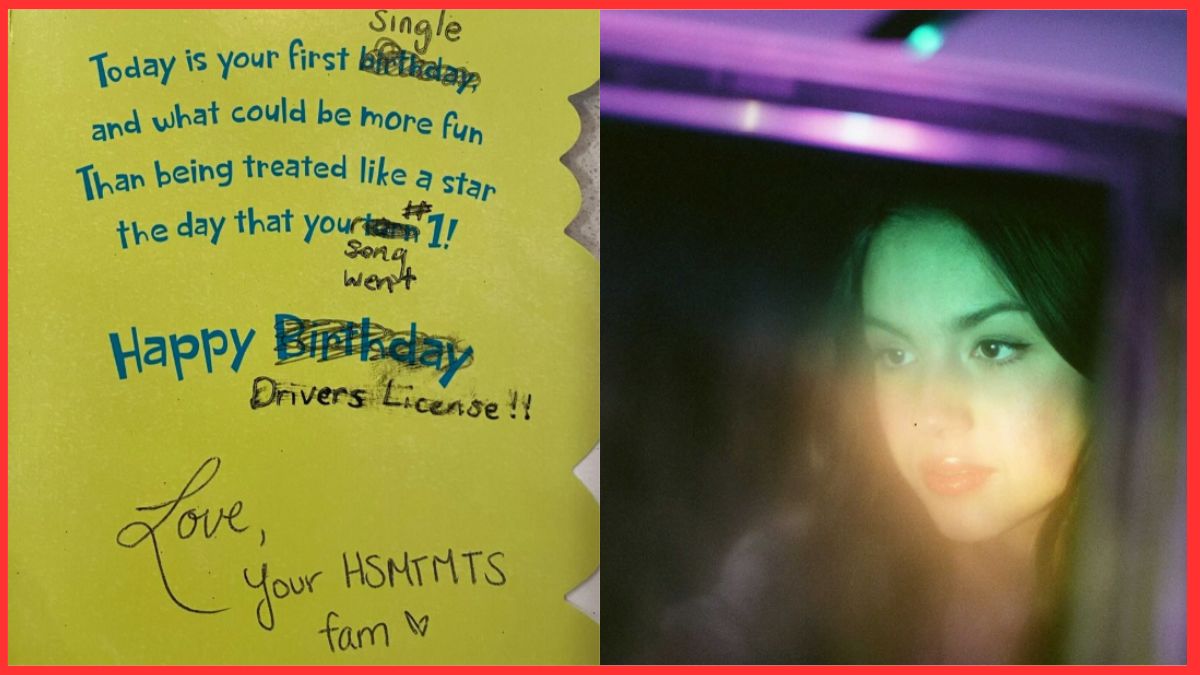 Single
Today is your first birthday,
and what could be more fun
Than being treated like a star
the day that your turn # 1!
song
went
Happy Birthday
Drivers License!!
Love,
Your HSMTMTS
fam